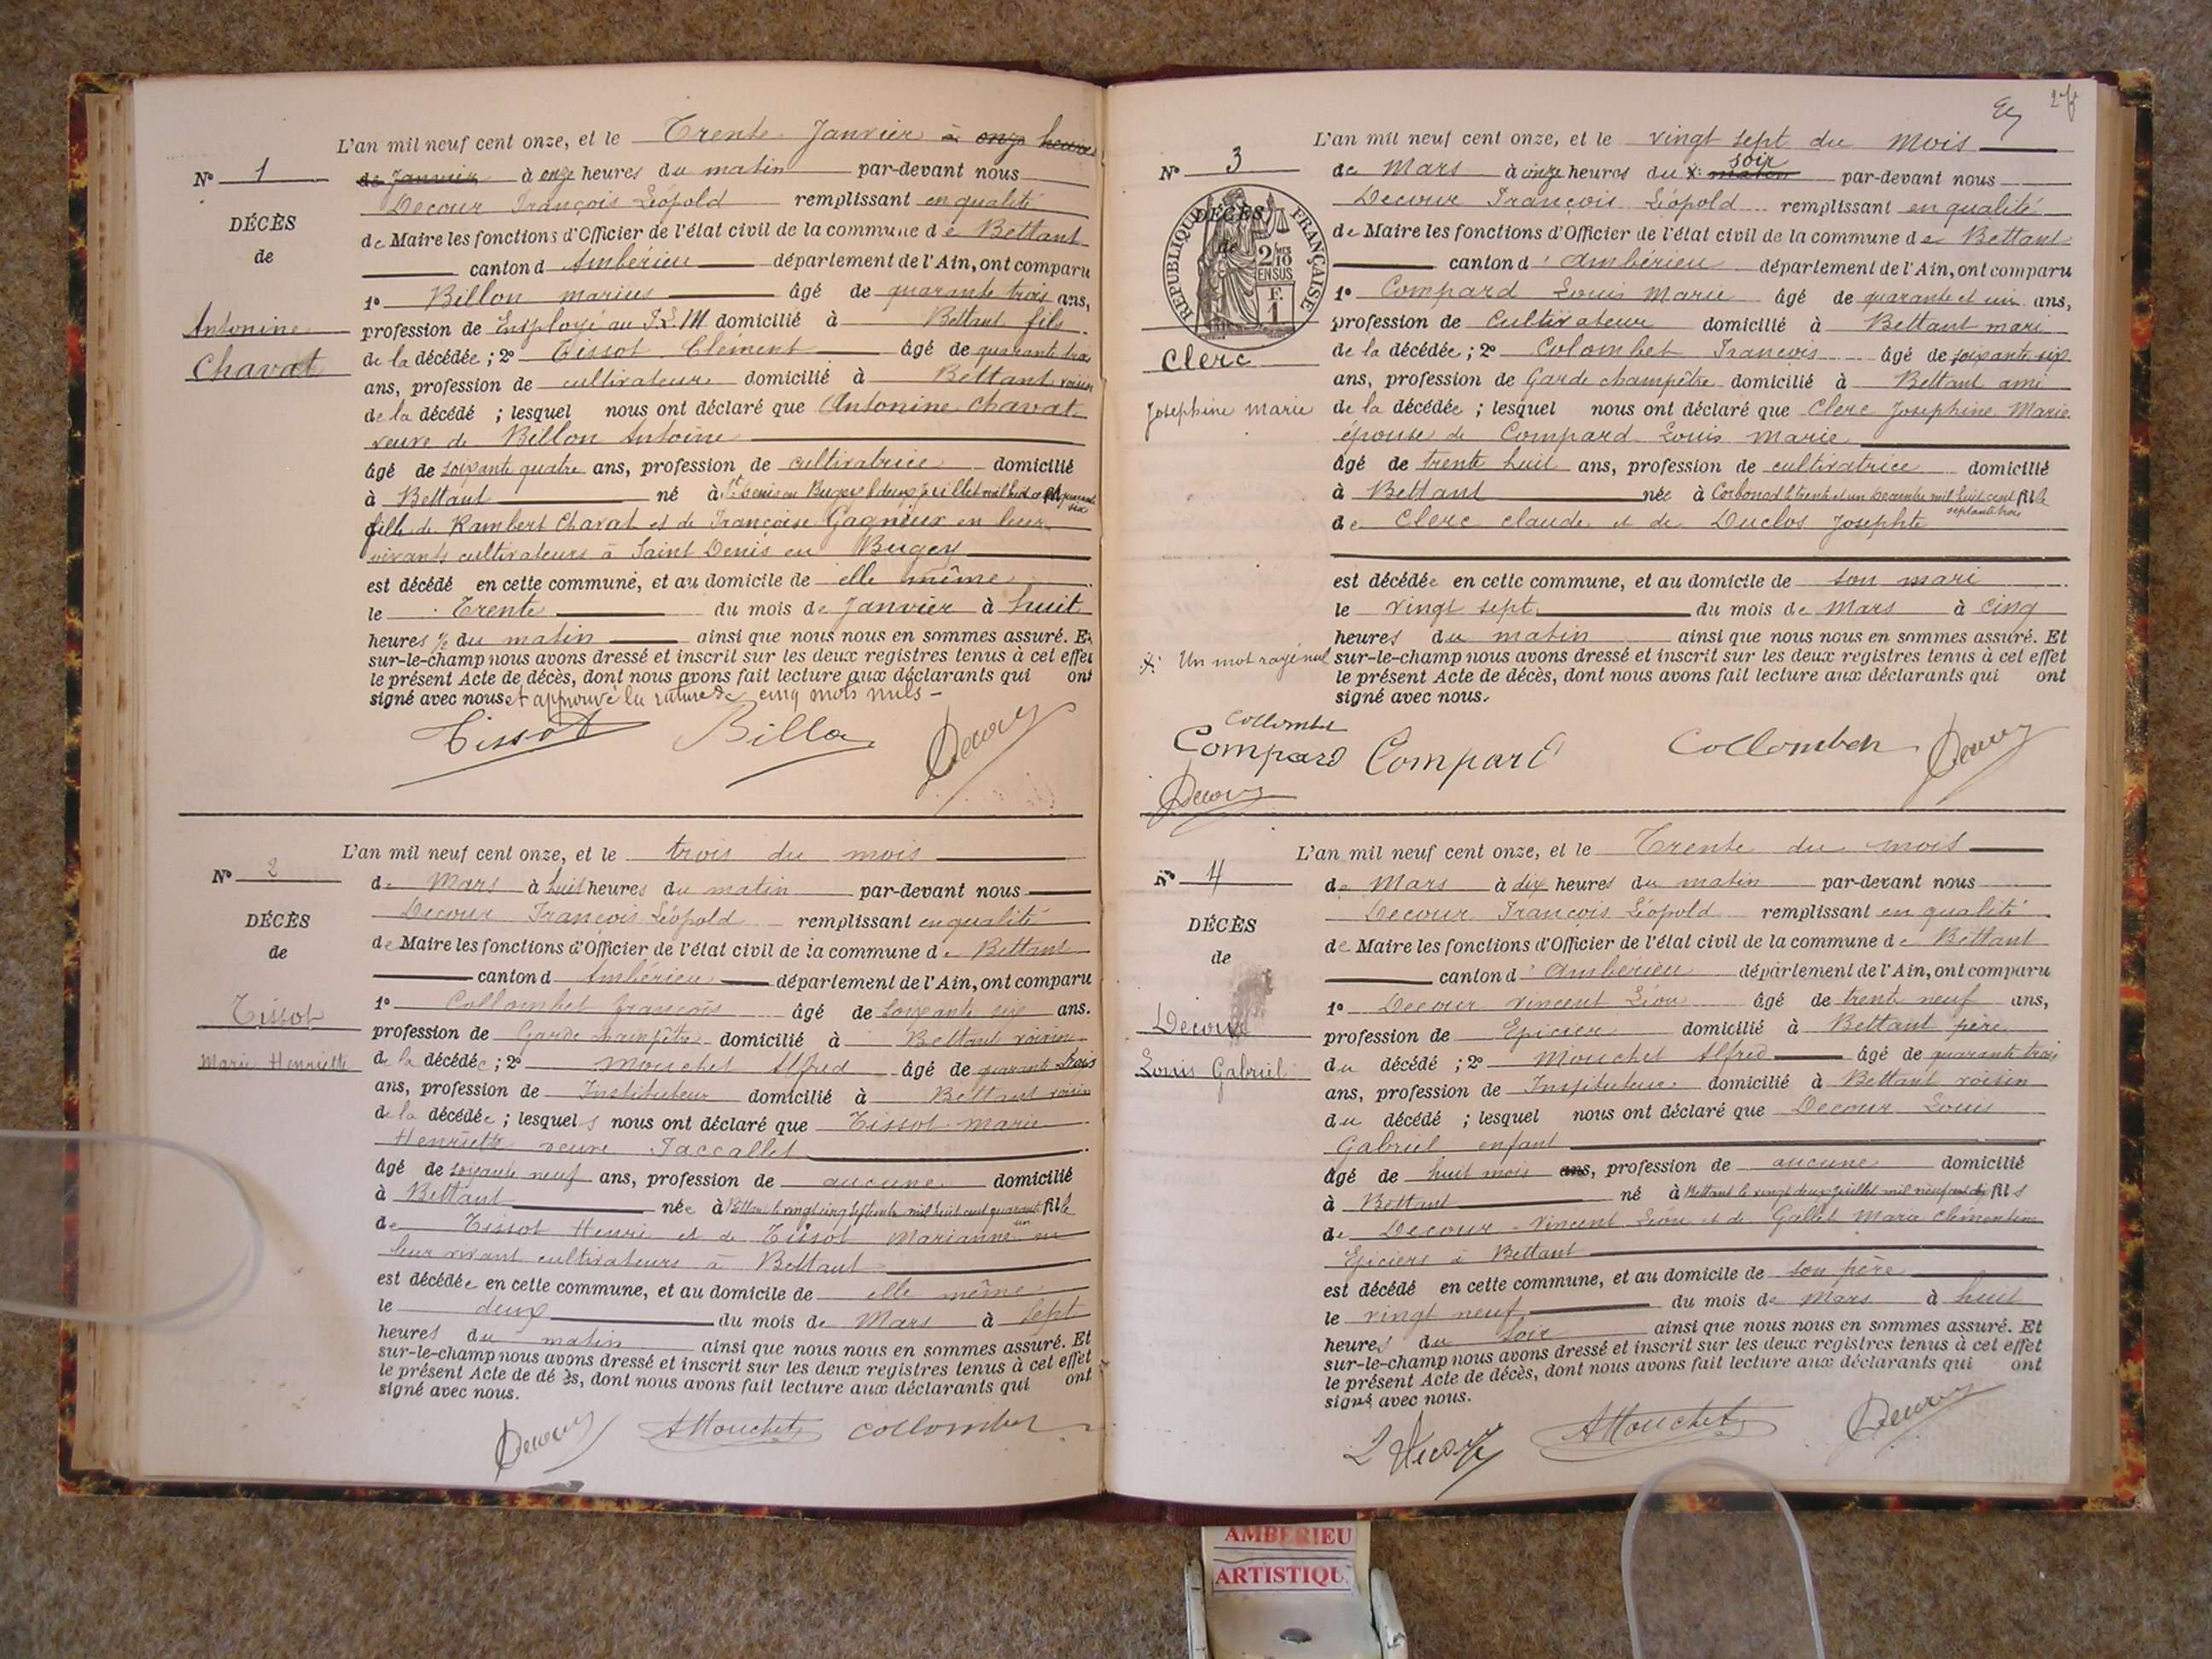 L'an mil neuf cent onze, et le Trente Janvier à onze heures
de Janvier à onze heures du matin par-devant nous
Decour François Léopold remplissant en qualité
de Maire les fonctions d'Officier de l'état civil de la commune de Bettant
canton d Ambérieu département de l'Ain, ont comparu
1° Billon marius âgé de quarante trois ans,
profession de Employé au P.L.M domicilié à Bettant fils
de la décédée ; 2° Tissot Clément âgé de quarante trois
ans, profession de cultivateur domicilié à Bettant voisin
de la décédé ; lesquel nous ont déclaré que Antonine Chavat
veuve de Billon Antoine
âgé de soixante quatre ans, profession de cultivatrice domicilié
à Bettant né à St Denis en Bugey le deux juillet mil huit cent quarante six
fille de Rambert Chavat et de Françoise Gagneux en leur
vivants cultivateurs à Saint Denis en Bugey
est décédé en cette commune, et au domicile de elle même
le Trente du mois de Janvier à huit
heures ½ du matin ainsi que nous nous en sommes assuré. Et
sur-le-champ nous avons dressé et inscrit sur les deux registres tenus à cet effet
le présent Acte de décès, dont nous avons fait lecture aux déclarants qui ont
signé avec nous et approuvé la rature de cinq mots nuls
Tissot Billon Decour
N° 1
DÉCÈS
de
Antonine
Chavat
L'an mil neuf cent onze, et le trois du mois
de Mars à huit heures du matin par-devant nous
Decour François Léopold remplissant en qualité
de Maire les fonctions d'Officier de l'état civil de la commune de Bettant
canton d Ambérieu département de l'Ain, ont comparu
1° Collombet françois âgé de soixante six ans.
profession de Garde champêtre domicilié à Bettant voisin
de la décédée ; 2° Mouchet Alfred âgé de quarante trois
ans, profession de Instituteur domicilié à Bettant voisin
de la décédée ; lesquels nous ont déclaré que Tissot marie
Henriette veuve Jaccallet
âgé de soixante neuf ans, profession de aucune domicilié
à Bettant née à Bettant le vingt cinq septembre mil huit cent quarante un fille
de Tissot Henri et de Tissot Marianne en
leur vivant cultivateurs à Bettant
est décédée en cette commune, et au domicile de elle même
le deux du mois de Mars à sept
heures du matin ainsi que nous nous en sommes assuré. Et
sur-le-champ nous avons dressé et inscrit sur les deux registres tenus à cet effet
le présent Acte de décès, dont nous avons fait lecture aux déclarants qui ont
signé avec nous.
Decour AMouchet Collombet
N° 2
DÉCÈS
de
Tissot
Marie Henriette
27
L'an mil neuf cent onze, et le vingt sept du Mois
de Mars à onze heures du x matin soir par-devant nous
Decour François Léopold remplissant en qualité
de Maire les fonctions d'Officier de l'état civil de la commune de Bettant
canton d'Ambérieu département de l'Ain, ont comparu
1° Compard Louis Marie âgé de quarante et un ans,
profession de Cultivateur domicilié à Bettant mari
de la décédée ; 2° Colombet François âgé de soixante six
ans, profession de Garde champêtre domicilié à Bettant ami
de la décédée ; lesquel nous ont déclaré que Clerc Josephine Marie
épouse de Compard Louis Marie
âgé de trente huit ans, profession de cultivatrice domicilié
à Bettant née à Corbonod le trente et un Décembre mil huit cent septante trois fille
de Clerc claude et de Duclos Josephte
est décédée en cette commune, et au domicile de son mari
le vingt sept du mois de Mars à cinq
heures du matin ainsi que nous nous en sommes assuré. Et
sur-le-champ nous avons dressé et inscrit sur les deux registres tenus à cet effet
le présent Acte de décès, dont nous avons fait lecture aux déclarants qui ont
signé avec nous.
Compard Collombet Decour
N° 3
RÉPUBLIQUE FRANÇAISE
DÉCÈS
de
2/10
EN SUS
F.
1
Clerc
Josephine Marie
x Un mot rayé nul
Collombet
Compard
Decour
L'an mil neuf cent onze, et le Trente du mois
de Mars à dix heures du matin par-devant nous
Decour François Léopold remplissant en qualité
de Maire les fonctions d'Officier de l'état civil de la commune de Bettant
canton d'Ambérieu département de l'Ain, ont comparu
1° Decour Vincent Léon âgé de trente neuf ans,
profession de Epicier domicilié à Bettant père
du décédé ; 2° Mouchet Alfred âgé de quarante trois
ans, profession de Instituteur domicilié à Bettant voisin
du décédé ; lesquel nous ont déclaré que Decour Louis
Gabriel enfant
âgé de huit mois ans, profession de aucune domicilié
à Bettant né à Bettant le vingt deux juillet mil neuf cent dix fils
de Decour Vincent Léon et de Gallet Marie Clémentine
Epiciers à Bettant
est décédé en cette commune, et au domicile de son père
le vingt neuf du mois de Mars à huit
heures du soir ainsi que nous nous en sommes assuré. Et
sur-le-champ nous avons dressé et inscrit sur les deux registres tenus à cet effet
le présent Acte de décès, dont nous avons fait lecture aux déclarants qui ont
signé avec nous.
L Decour AMouchet Decour
N° 4
DÉCÈS
de
Decour
Louis Gabriel
AMBERIEU
ARTISTIQU